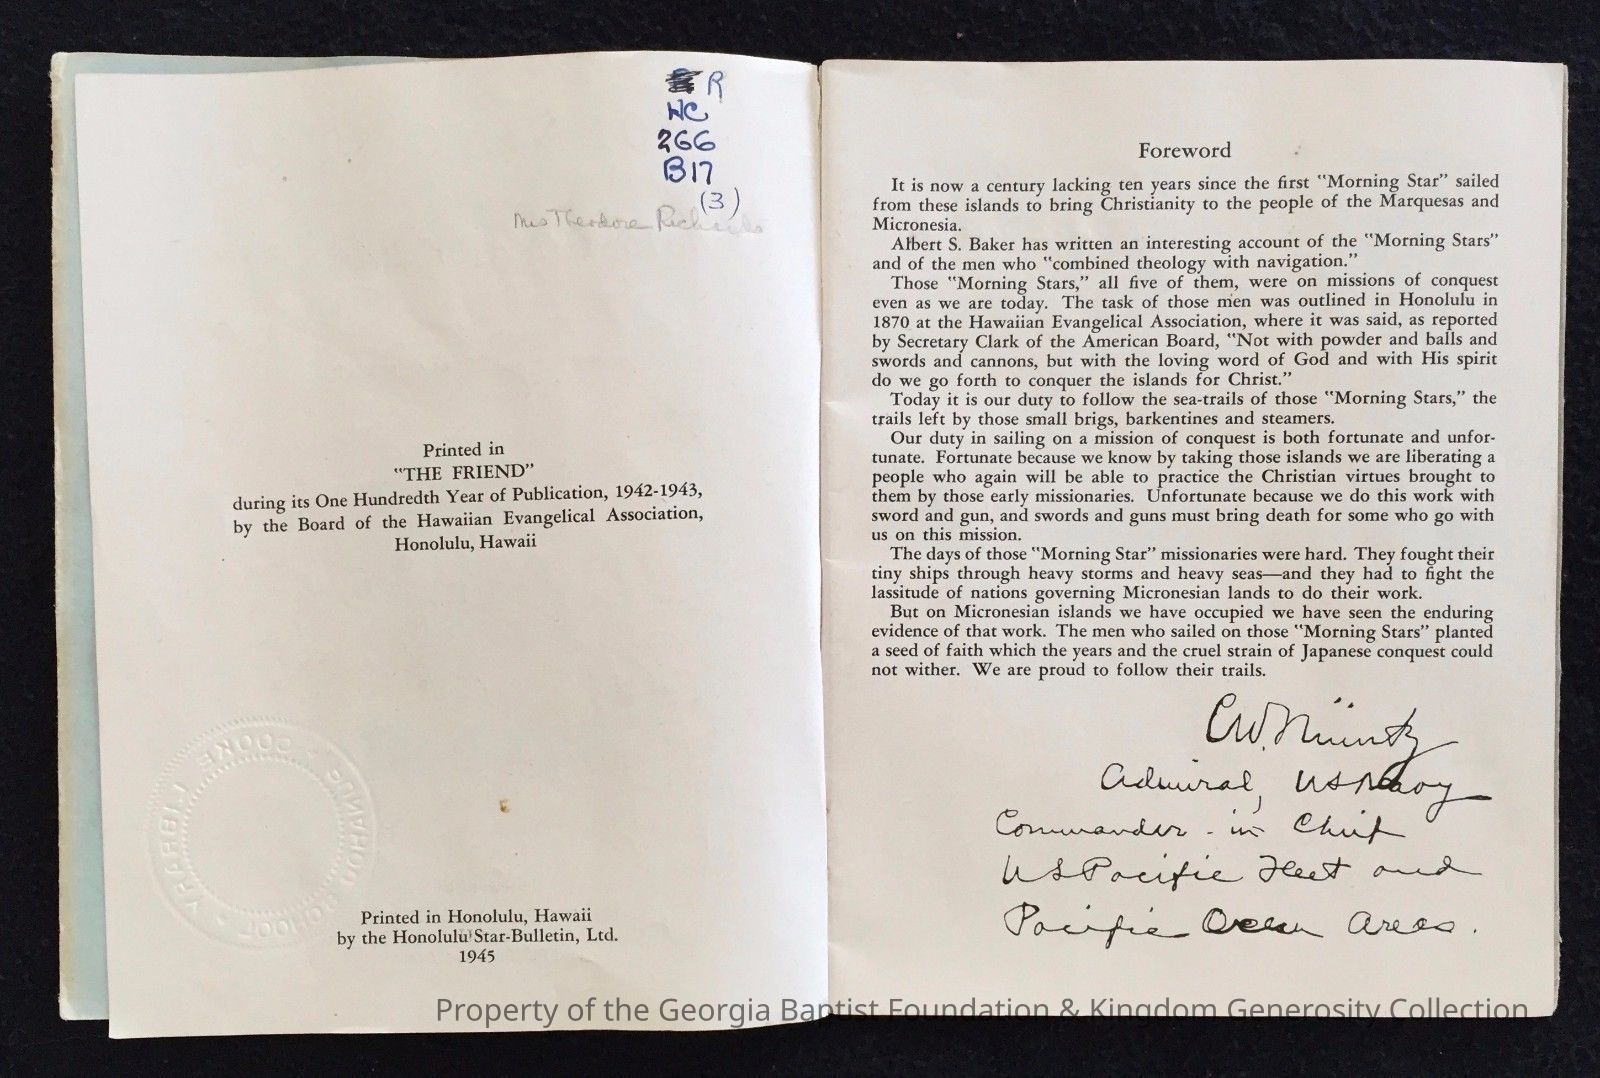 R
HC
266
B17
(3)
Mrs Theodore Richards
Printed in
"THE FRIEND"
during its One Hundredth Year of Publication, 1942-1943,
by the Board of the Hawaiian Evangelical Association,
Honolulu, Hawaii
COOKE LIBRARY • PUNAHOU SCHOOL •
Printed in Honolulu, Hawaii
by the Honolulu Star-Bulletin, Ltd.
1945
Foreword
It is now a century lacking ten years since the first "Morning Star" sailed
from these islands to bring Christianity to the people of the Marquesas and
Micronesia.
Albert S. Baker has written an interesting account of the "Morning Stars"
and of the men who "combined theology with navigation."
Those "Morning Stars," all five of them, were on missions of conquest
even as we are today. The task of those men was outlined in Honolulu in
1870 at the Hawaiian Evangelical Association, where it was said, as reported
by Secretary Clark of the American Board, "Not with powder and balls and
swords and cannons, but with the loving word of God and with His spirit
do we go forth to conquer the islands for Christ."
Today it is our duty to follow the sea-trails of those "Morning Stars," the
trails left by those small brigs, barkentines and steamers.
Our duty in sailing on a mission of conquest is both fortunate and unfor-
tunate. Fortunate because we know by taking those islands we are liberating a
people who again will be able to practice the Christian virtues brought to
them by those early missionaries. Unfortunate because we do this work with
sword and gun, and swords and guns must bring death for some who go with
us on this mission.
The days of those "Morning Star" missionaries were hard. They fought their
tiny ships through heavy storms and heavy seas—and they had to fight the
lassitude of nations governing Micronesian lands to do their work.
But on Micronesian islands we have occupied we have seen the enduring
evidence of that work. The men who sailed on those "Morning Stars" planted
a seed of faith which the years and the cruel strain of Japanese conquest could
not wither. We are proud to follow their trails.
C.W. Nimitz
Admiral, US Navy
Commander-in Chief
US Pacific Fleet and
Pacific Ocean Areas.
Property of the Georgia Baptist Foundation & Kingdom Generosity Collection